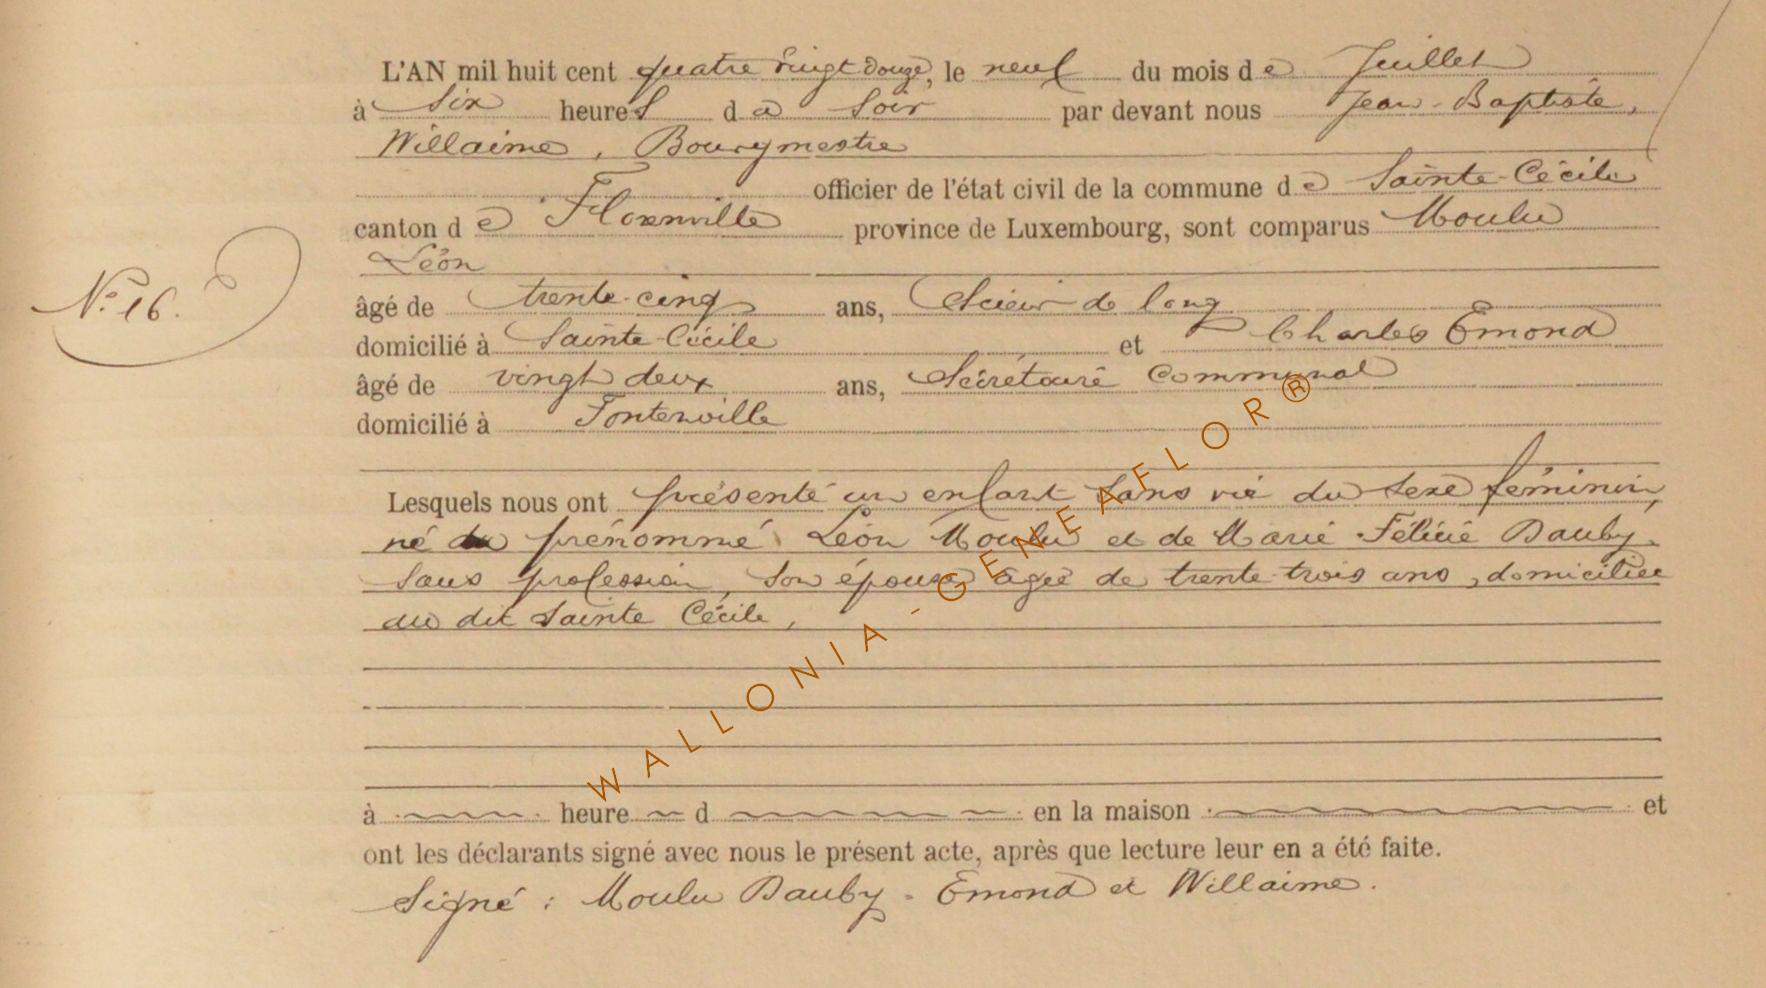 L'AN mil huit cent quatre vingt douze, le neuf du mois de Juillet
à Six heures du Soir par devant nous Jean-Baptiste,
Willaime, Bourgmestre
officier de l'état civil de la commune de Sainte-Cécile
canton de Florenville province de Luxembourg, sont comparus Moulu
Léon
N° 16.
âgé de trente-cinq ans, Scieur de long
domicilié à Sainte-Cécile et Charles Emond
âgé de vingt deux ans, Sécrétaire Communal
domicilié à Fontenoille
Lesquels nous ont présenté un enfant sans vie du sexe féminin,
né du prénommé Léon Moulu et de Marie Félicie Dauby.
Sans profession, son épouse âgée de trente-trois ans, domiciliée
au dit Sainte Cécile,
à heure d en la maison et
ont les déclarants signé avec nous le présent acte, après que lecture leur en a été faite.
Signé : Moulu Dauby - Emond et Willaime.
WALLONIA - GENEAFLOR®